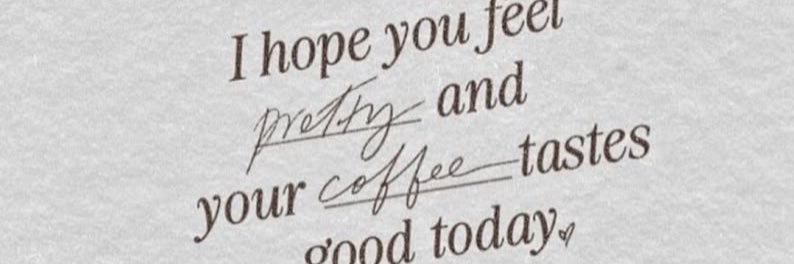 I hope you feel
pretty and
your coffee tastes
good today.